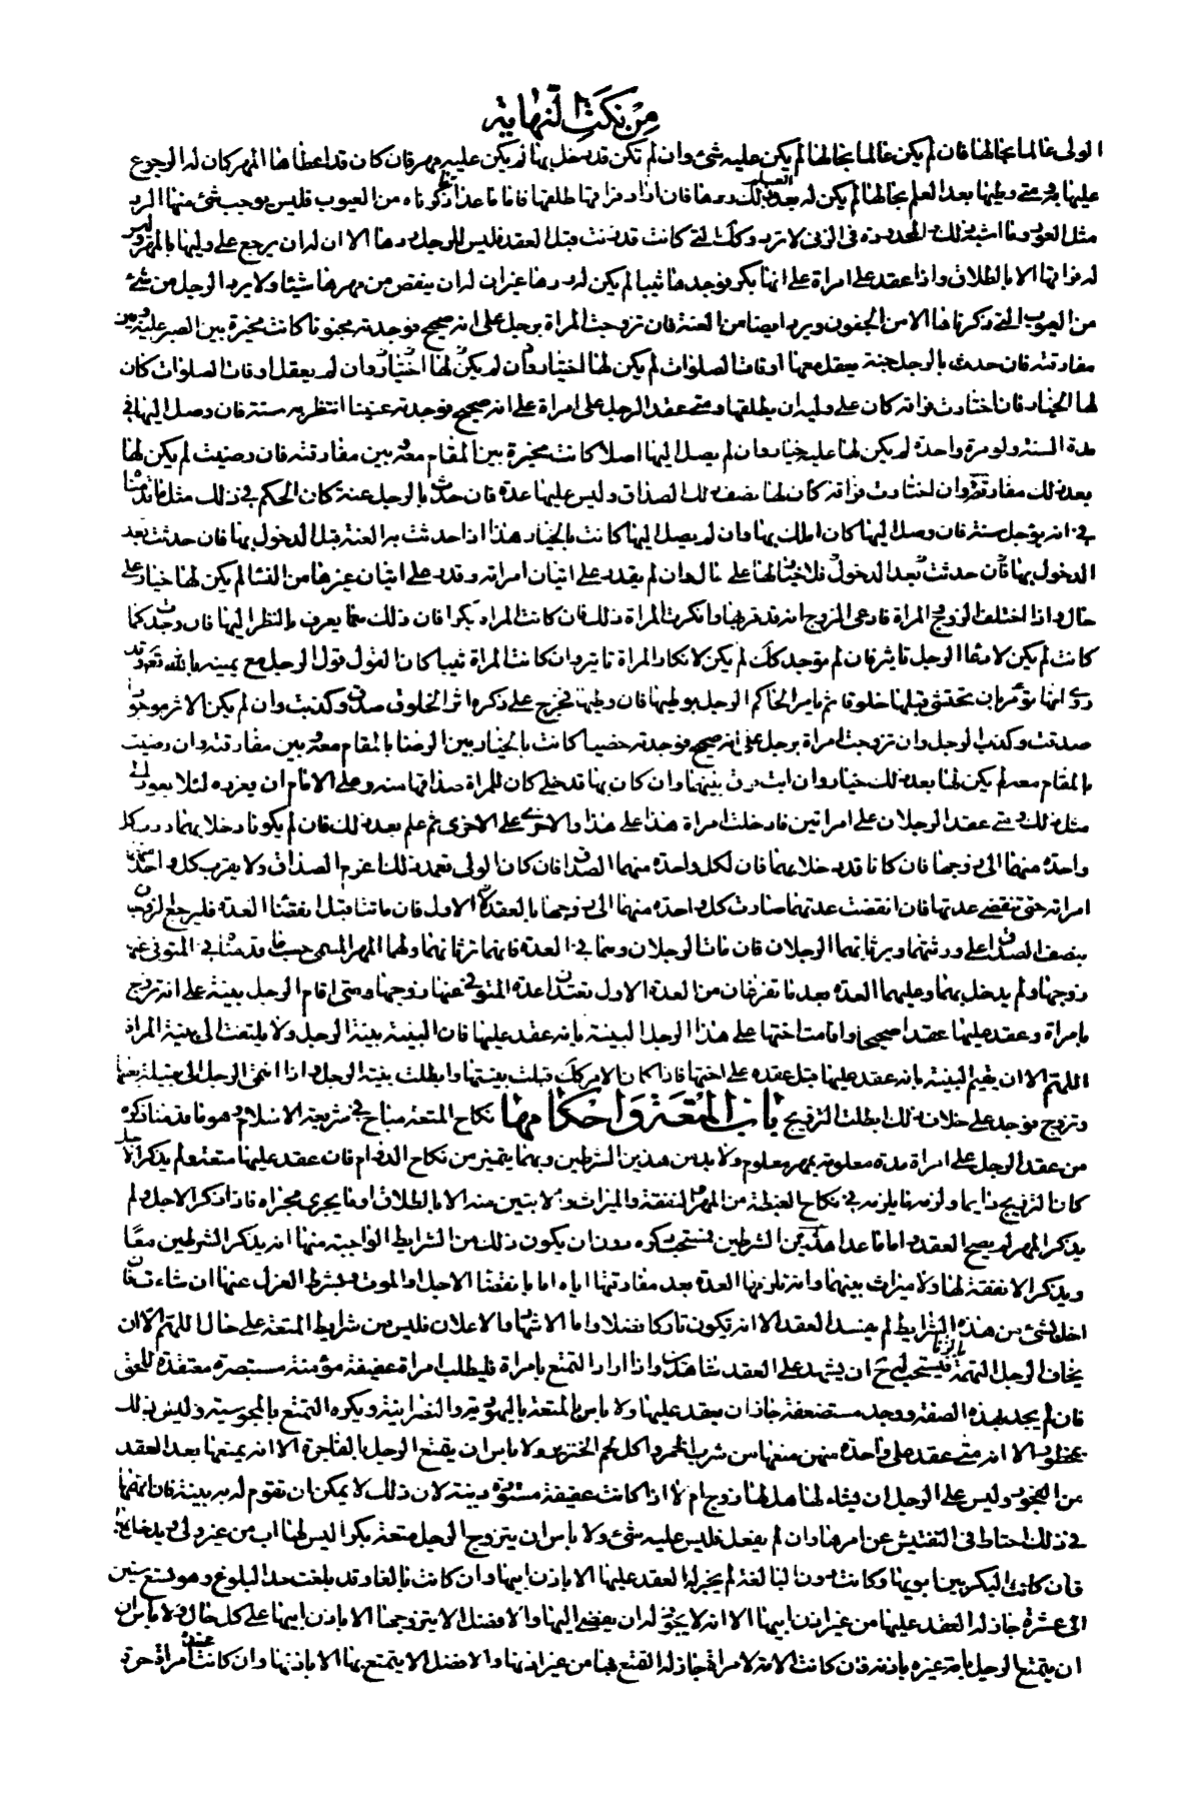 من نكت النهاية
الولى عالما بحالها فان لم يكن عالما بحالها لم يكن عليه شئ وان لم تكن قد دخل بها لم يكن عليه مهر فان كان قد اعطاها المهر كان له الرجوع
عليها به ومتى وطيها بعد العلم بحالها لم يكن له بعد ذلك ردها فان اراد فراقها طلقها فاما ما عدا ما ذكرناه من العيوب فليس يوجب شئ منها الرد
مثل العور وما اشبه ذلك المحدودة فى الزنى لا ترد وكذلك التى كانت قد زنت قبل العقد فليس للرجل ردها الا ان له ان يرجع على وليها بالمهر وليس
له فراقها الا بالطلاق واذا عقد على امراة على انها بكر فوجدها ثيبا لم يكن له ردها غير ان له ان ينقص من مهرها شيئا ولا يرد الرجل من شئ
من العيوب التى ذكرناها الا من الجنون ويرد ايضا من العنة فان تزوجت المراة برجل على انه صحيح فوجدته مجنونا كانت مخيرة بين الصبر عليه وبين
مفارقته فان حدث بالرجل جنة يعقل معها اوقات الصلوات لم يكن لها اختيار وان لم يعقل اوقات الصلوات كان
لها الخيار فان اختارت فراقه كان على وليه ان يطلقها ومتى عقد الرجل على امراة على انه صحيح فوجدته عنينا انتظر به سنة فان وصل اليها فى
مدة السنة ولو مرة واحدة لم يكن لها عليه خيار وان لم يصل اليها اصلا كانت مخيرة بين المقام معه وبين مفارقته فان رضيت لم يكن لها
بعد ذلك مفارقته وان اختارت فراقه كان لها نصف الصداق وليس عليها عدة فان حدث بالرجل عنة كان الحكم فى ذلك مثل ما قدمنا
فى انه يؤجل سنة فان وصل اليها كان املك بها وان لم يصل اليها كانت بالخيار هذا اذا حدثت به العنة قبل الدخول بها فان حدثت بعد
الدخول بها فان حدثت بعد الدخول فلا خيار لها على حال وان لم يقدر على اتيان امراته وقدر على اتيان غيرها من النسا لم يكن لها خيار على
حال واذا اختلف الزوج المراة فادعى الزوج انه قد قربها وانكرت المراة ذلك فان كانت المراة بكرا فان ذلك مما يعرف بالنظر اليها فان وجدت كما
كانت لم يكن لادعا الرجل تاثير فان لم توجد كذلك لم يكن لانكار المراة تاثير وان كانت المراة ثيبا كان القول قول الرجل مع يمينه بالله تعالى وقد
روى انها تؤمر بان تحتشى قبلها خلوقا ثم يامر الحاكم الرجل بوطيها فان وطيها فخرج على ذكره اثر الخلوق صدق وكذبت وان لم يكن الاثر موجودا
صدقت وكذب الرجل وان تزوجت امراة برجل على انه صحيح فوجدته خصيا كانت بالخيار بين الرضا بالمقام معه وبين مفارقته وان رضيت
بالمقام معه لم يكن لها بعد ذلك خيار وان ابت فرق بينهما وان كان بها قد خلى كان للمراة صداقها منه وعلى الامام ان يعزره لئلا يعود الى
مثل ذلك ومتى عقد الرجلان على امراتين فادخلت امراة هذا على هذا والاخرى على الاخرى ثم علم بعد ذلك فان لم يكونا دخلا بهما ردت كل
واحدة منهما الى زوجها فان كانا قد دخلا بهما فان لكل واحدة منهما الصداق فان كان الولى تعمد ذلك اغرم الصداق ولا يقرب كل واحد منهما
امراته حتى تنقضى عدتها فان انقضت عدتهما صارت كل واحدة منهما الى زوجها بالعقد الاول فان ماتتا قبل انقضاء العدة فليرجع الزوجان
بنصف الصداق على ورثتهما ويرثانهما الرجلان فان مات الرجلان وهما فى العدة فانهما ترثانهما ولهما المهر المسمى حسب ما قدمناه فى المتوفى عنها
زوجها ولم يدخل بهما وعليهما العدة بعد ما تفرغان من العدة الاول تعتدان عدة المتوفى عنها زوجها ومتى اقام الرجل بينة على انه تزوج
بامراة وعقد عليها عقدا صحيحا واقامت اختها على هذا الرجل البينة بانه عقد عليها فان البينة بينة الرجل ولا يلتفت الى بينة المراة
اللهم الا ان يقيم البينة بانه عقد عليها قبل عقده على اختها فاذا كان الامر كذلك قبلت بينتها وابطلت بينة الرجل واذا انتمى الرجل الى قبيلة بعينها
وتزوج فوجد على خلاف ذلك ابطلت التزويج باب المتعة واحكامها نكاح المتعة مباح فى شريعة الاسلام وهو ما قدمنا ذكره
من عقد الرجل على امراة مدة معلومة بمهر معلوم ولا بد من هذين الشرطين وبهما يتميز من نكاح الدوام فان عقد عليها متعة ولم يذكر الاجل
كان التزويج دايما ولزمه ما يلزمه فى نكاح الغبطة من المهر والنفقة والميراث ولا تبين منه الا بالطلاق او ما يجرى مجراه فاذا ذكر الاجل ولم
يذكر المهر لم يصح العقد واما ما عدا هذين الشرطين فمستحب ذكره دون ان يكون ذلك من الشرايط الواجبة منها انه يذكر الشرطين معا
ويذكر الا نفقة لها ولا ميراث بينهما وانه تلزمها العدة بعد مفارقتها اياه اما بانقضا الاجل او الموت ويشرط العزل عنها ان شاء فان
اخل بشئ من هذه الشرايط لم يفسد العقد الا انه يكون تاركا فضلا واما الاشهاد والاعلان فليس من شرايط المتعة على حال اللهم الا ان
يخاف الرجل التهمة بالزنا فيستحب له حينئذ ان يشهد على العقد شاهدين واذا اراد التمتع بامراة فليطلب امراة عفيفة مؤمنة مستبصرة معتقدة للحق
فان لم يجد بهذه الصفة ووجد مستضعفة جاز ان يعقد عليها ولا باس بالمتعة باليهودية والنصرانية ويكره التمتع بالمجوسية وليس ذلك
بمحظور الا انه متى عقد على واحدة منهن منعها من شرب الخمر واكل لحم الخنزير ولا باس ان يتمتع الرجل بالفاجرة الا انه يمنعها بعد العقد
من الفجور وليس على الرجل ان يسئلها هل لها زوج ام لا اذا كانت عفيفة مستورة دينة لان ذلك لا يمكن ان تقوم له به بينة فان اتهمها
فى ذلك احتاط فى التفتيش عن امرها وان لم يفعل فليس عليه شئ ولا باس ان يتزوج الرجل متعة بكرا ليس لها اب من غير ولى ويدخل بها
فان كانت البكر بين ابويها وكانت دون البالغة لم يجز له العقد عليها الا باذن ابيها وان كانت بالغا وقد بلغت حد البلوغ وهو تسع سنين
الى عشرة جاز له العقد عليها من غير اذن ابيها الا انه لا يجوز له ان يفضى اليها والافضل الا يتزوجها الا باذن ابيها على كل حال ولا باس ان
ان يتمتع الرجل بامة غيره باذنه وان كانت الامة لامراة جاز له التمتع بها من غير اذنها والافضل الا يتمتع بها الا باذنها وان كانت عنده امراة حرة